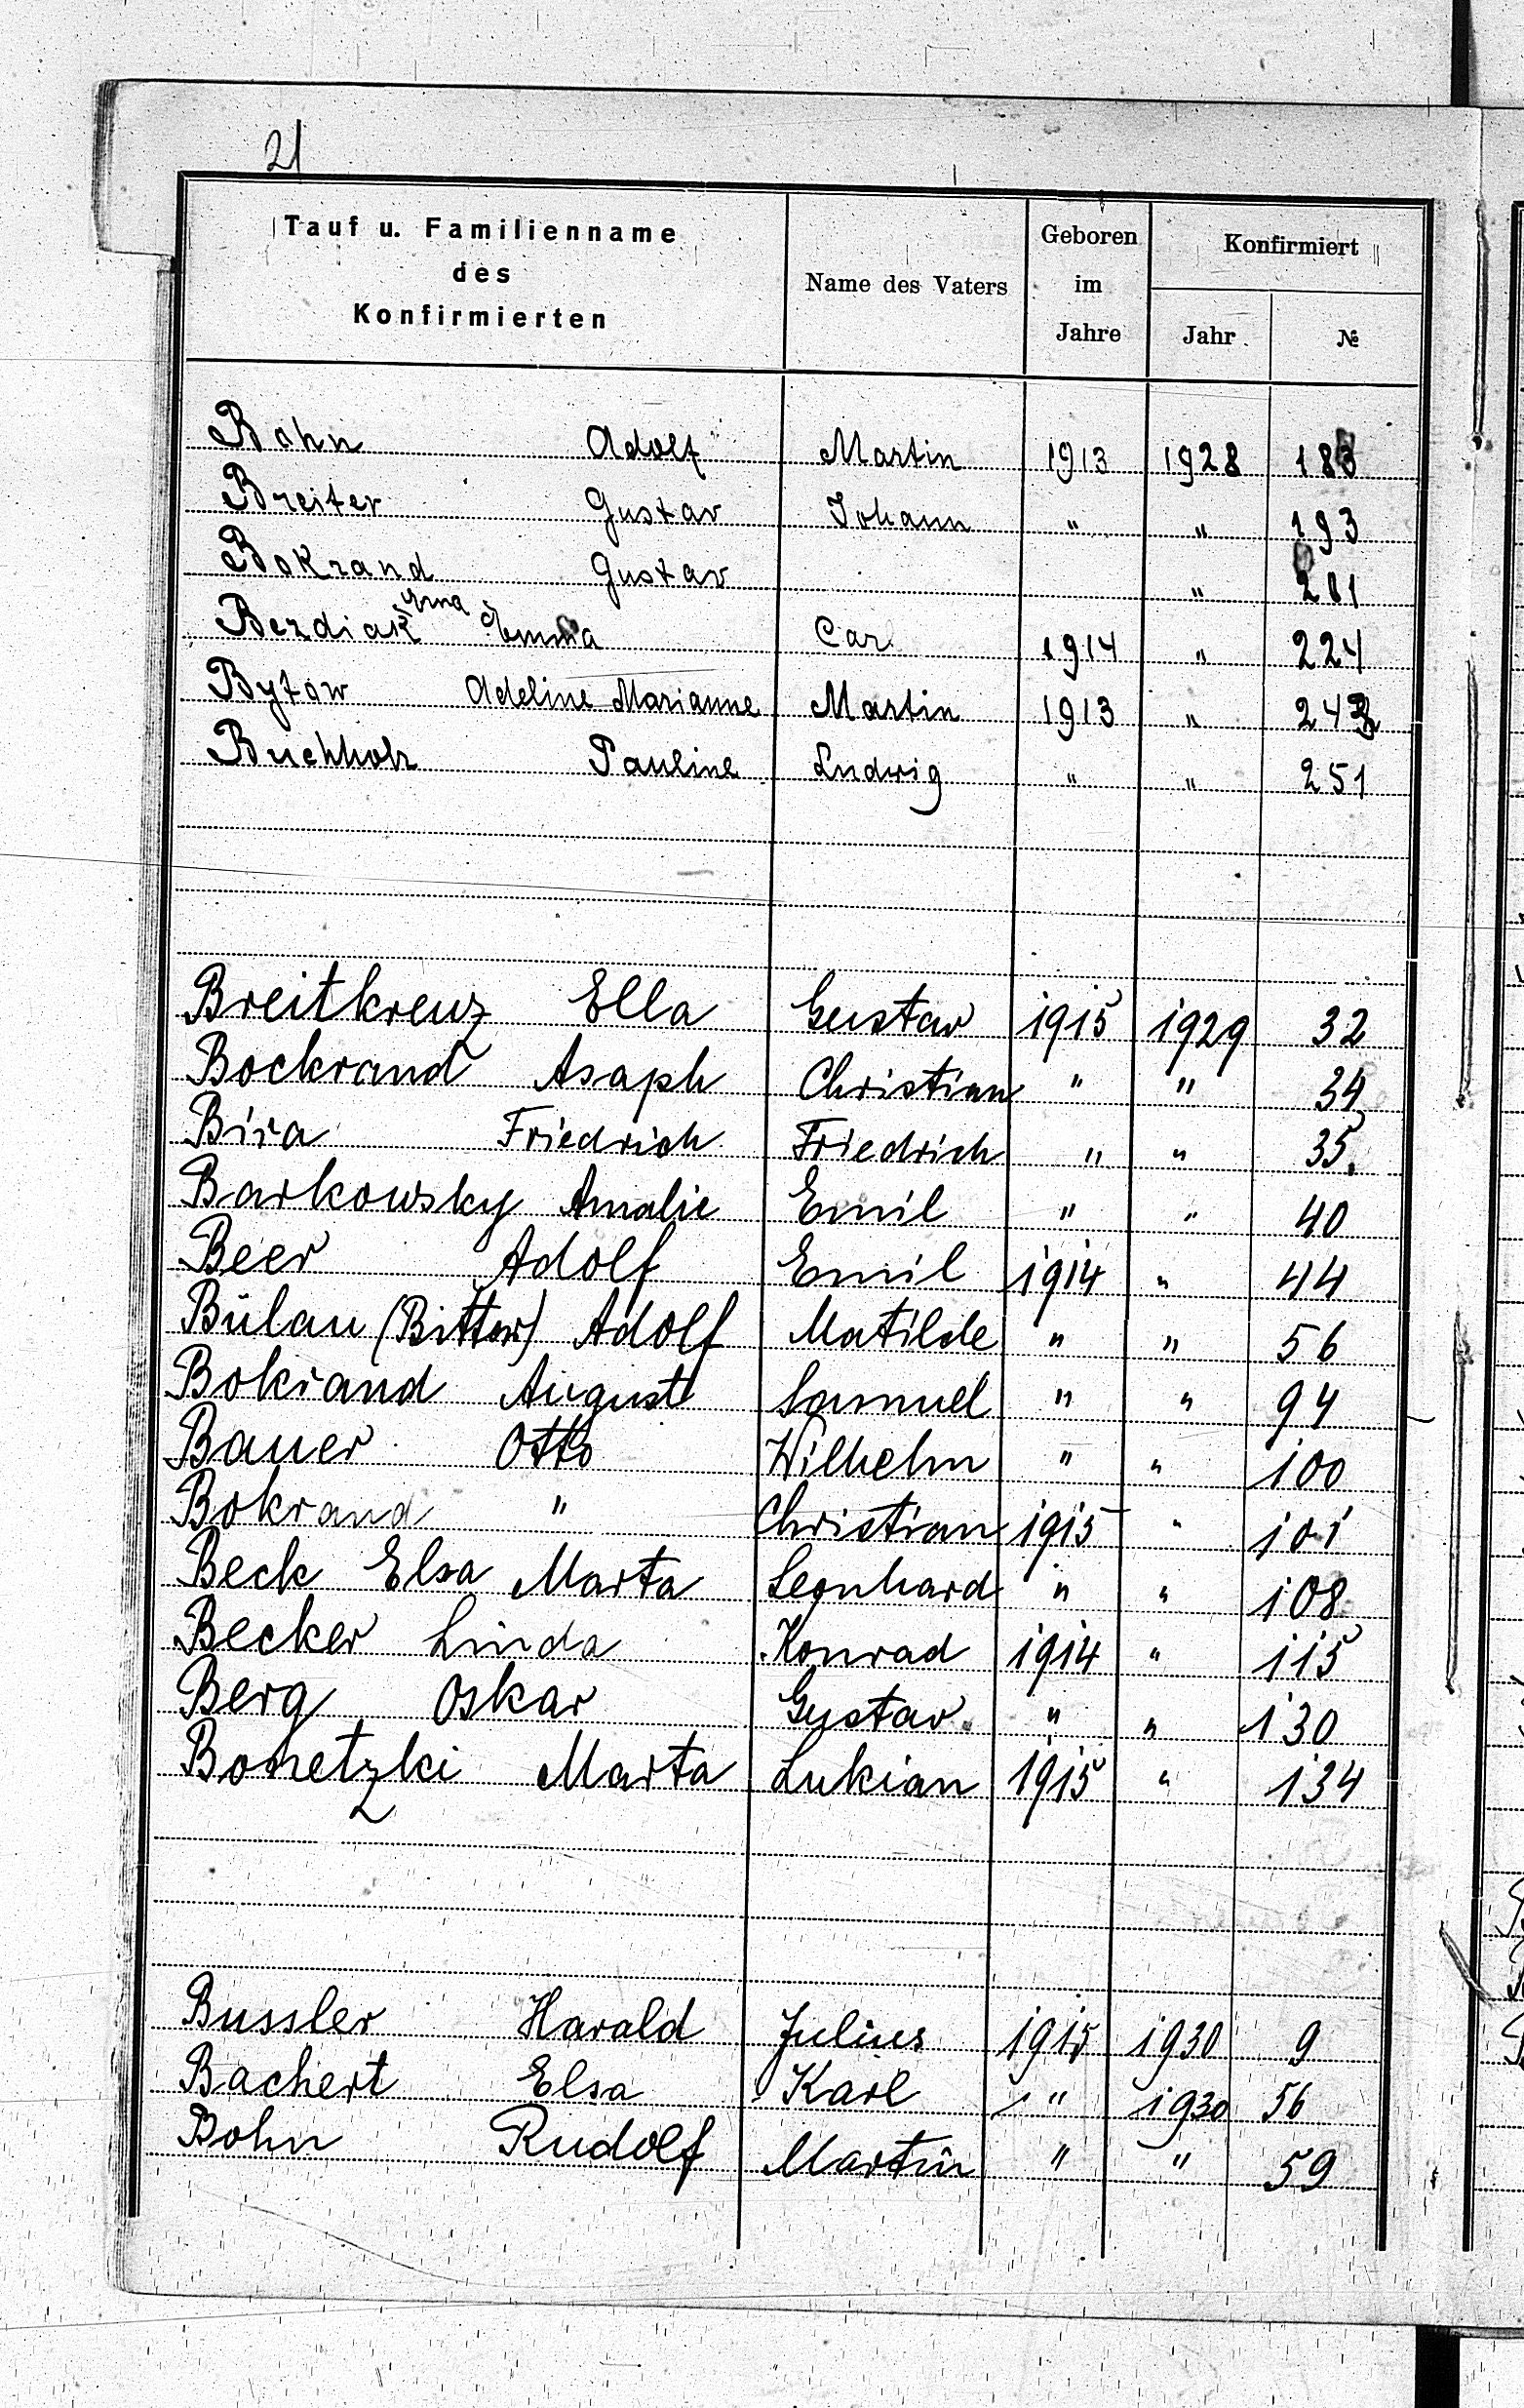 21
Tauf u. Familienname
des
Konfirmierten
Name des Vaters
Geboren
im
Jahre
Konfirmiert
Jahr
№
Bohn Adolf Martin 1913 1928 183
Breiter Gustav Johann " " 193
Bokrand Gustav " 201
Erna
Berdiak Emma Car 1914 " 224
Bytow Adeline Marianne Martin 1913 " 243
Buchholz Pauline Ludwig " " 251
Breitkreuz Ella Gustav 1915 1929 32
Bockrand Asaph Christian " " 34
Bira Friedrich Friedrich " " 35.
Barkowsky Amalie Emil " " 40
Beer Adolf Emil 1914 " 44
Bülau (Bitter) Adolf Matilde " " 56
Bokrand August Samuel " " 94
Bauer Otto Wilhelm " " 100
Bokrand " Christian 1915 " 101
Beck Elsa Marta Leonhard " " 108
Becker Linda Konrad 1914 " 115
Berg Oskar Gustav " " 130
Bonetzki Marta Lukian 1915 " 134
Bussler Harald Julius 1915 1930 9
Bachert Elsa Karl " 1930 56
Bohn Rudolf Martin " " 59